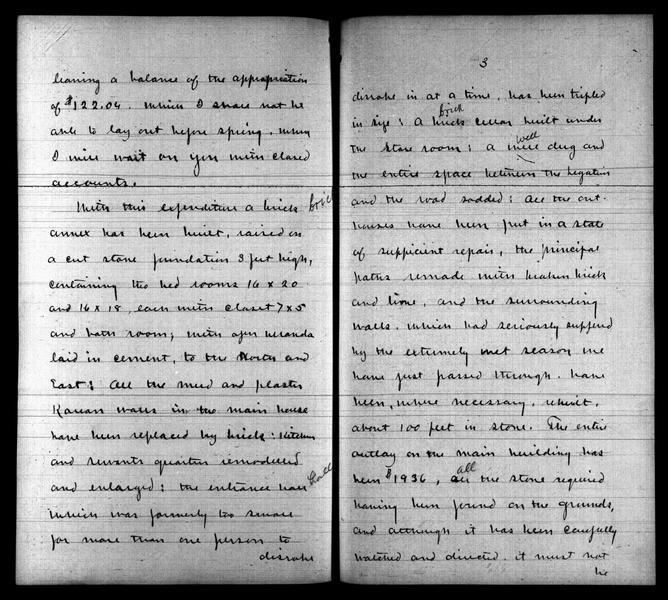 leaving a balance of the appropriation
of $122.04. which I shall not be
able to lay out before spring, when
I will wait on you with closed
accounts.
With this expenditure a brick brick
annex has been built, raised on
a cut stone foundation 3 feet high,
containing two bed rooms 16 x 20
and 16 x 18, each with closet 7 x 5
and bath room; with open veranda
laid in cement, to the North and
East: All the mud and plaster
Korean walls in the main house
have been replaced by brick: Kitchen
and servants quarters remodelled
and enlarged: the entrance hall hall
which was formerly too small
for more than one person to
disrobe
3
disrobe in at a time, has been tripled
in size: a brick brick cellar built under
the store room: a well well dug and
the entire space between the legation
and the road sodded: all the out-
houses have been put in a state
of sufficient repair, the principal
paths remade with broken brick
and lime, and the surrounding
walls, which had seriously suffered
by the extremely wet season we
have just passed through, have
been, where necessary, rebuilt,
about 100 feet in stone. The entire
outlay on the main building has
been $1936, all all the stone required
having been found on the grounds,
and although it has been carefully
watched and directed, it must not
be